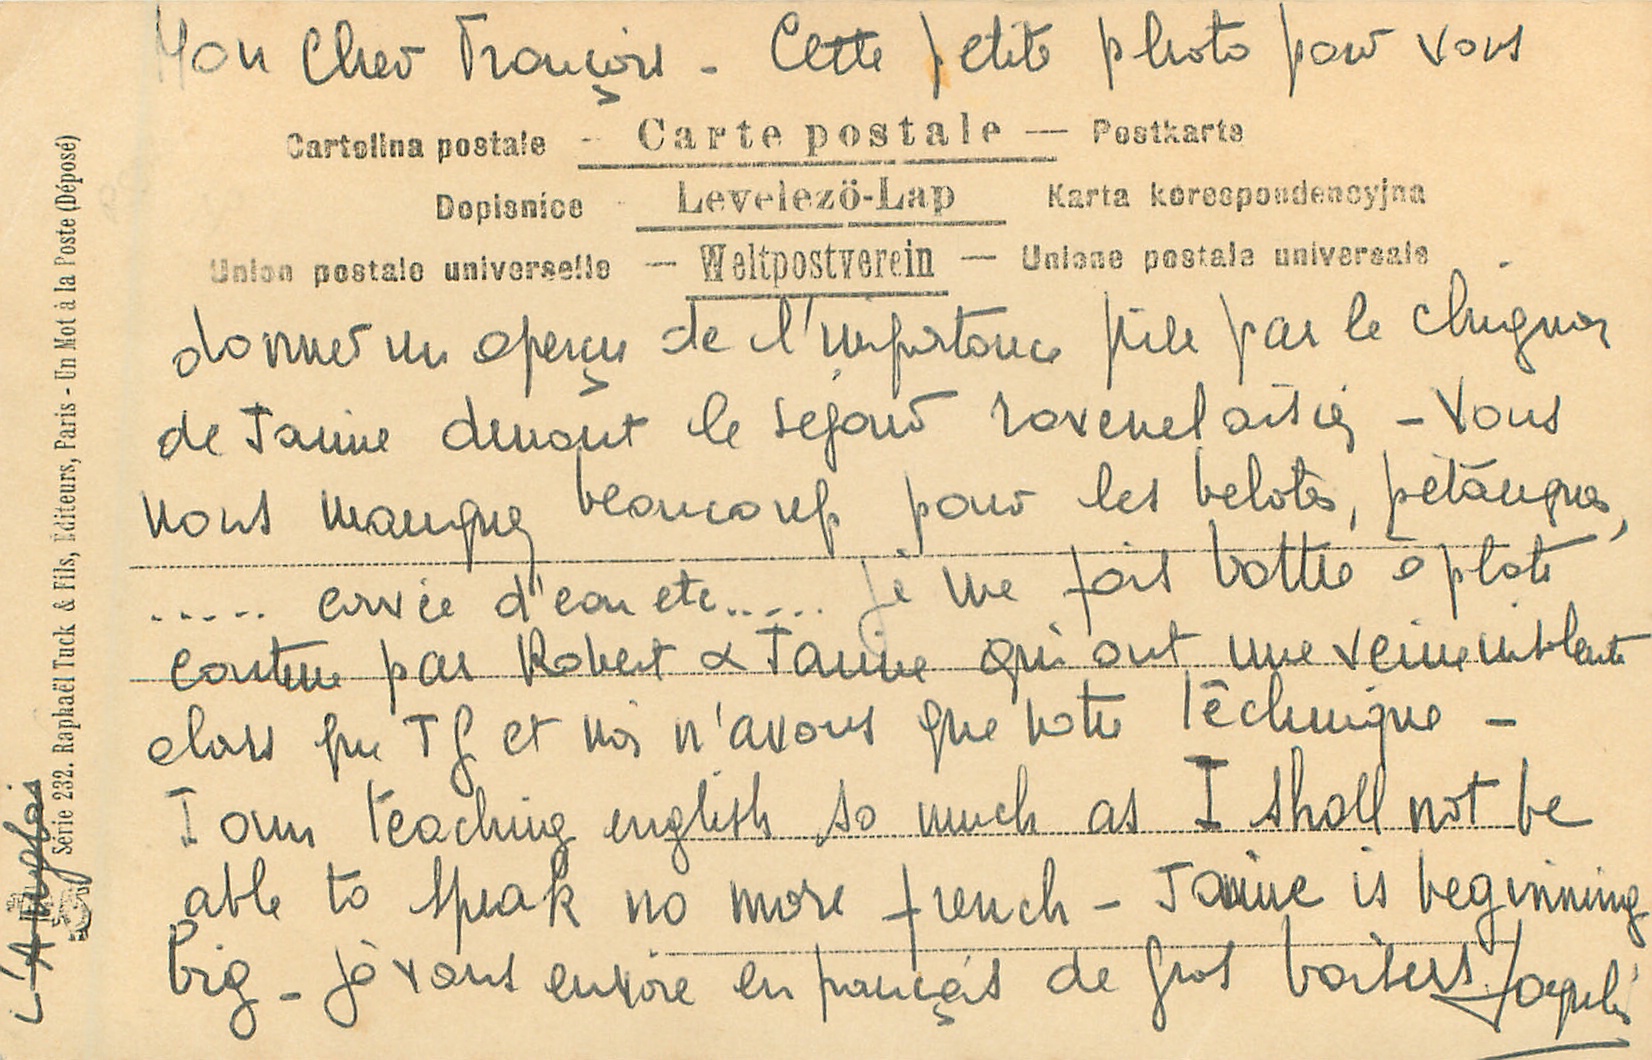 Mon Cher François - Cette petite photo pour vous
Cartolina postale - Carte postale — Postkarte
Dopisnice - Levelező-Lap Karta korespondencyjna
Union postale universelle — Weltpostverein — Unione postale universale
donner un aperçu de l'importance prise par le chignon
de Janine durant le séjour - Vous
nous manquez beaucoup pour les belotes, pétanques,
..... corvée d'eau etc..... je me fais battre à plate
couture par Robert & Janine qui ont une veine insolente
alors que JJ et moi n'avons que notre téchnique -
I am teaching english so much as I shall not be
able to speak no more french - Janine is beginning
big - je vous envoie en français de gros baisers
Série 232. Raphaël Tuck & Fils, Éditeurs, Paris - Un Mot à la Poste (Déposé)